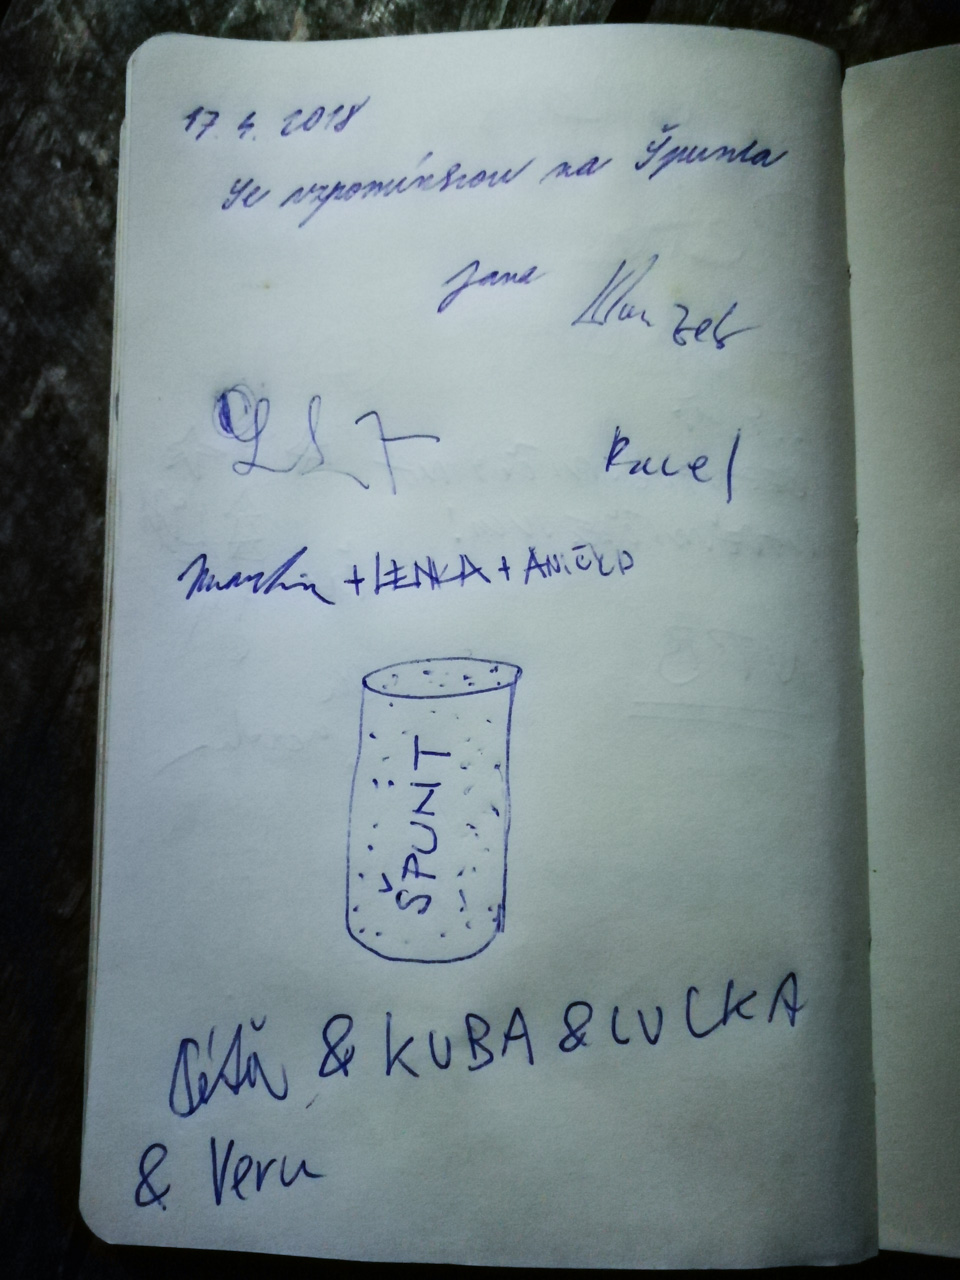 17. 4. 2018
Se vzpomínkou na Špunta
Jana
Pavel
Martin + LENKA + ANIČKA
ŠPUNT
& KUBA & LUCKA
& Veru